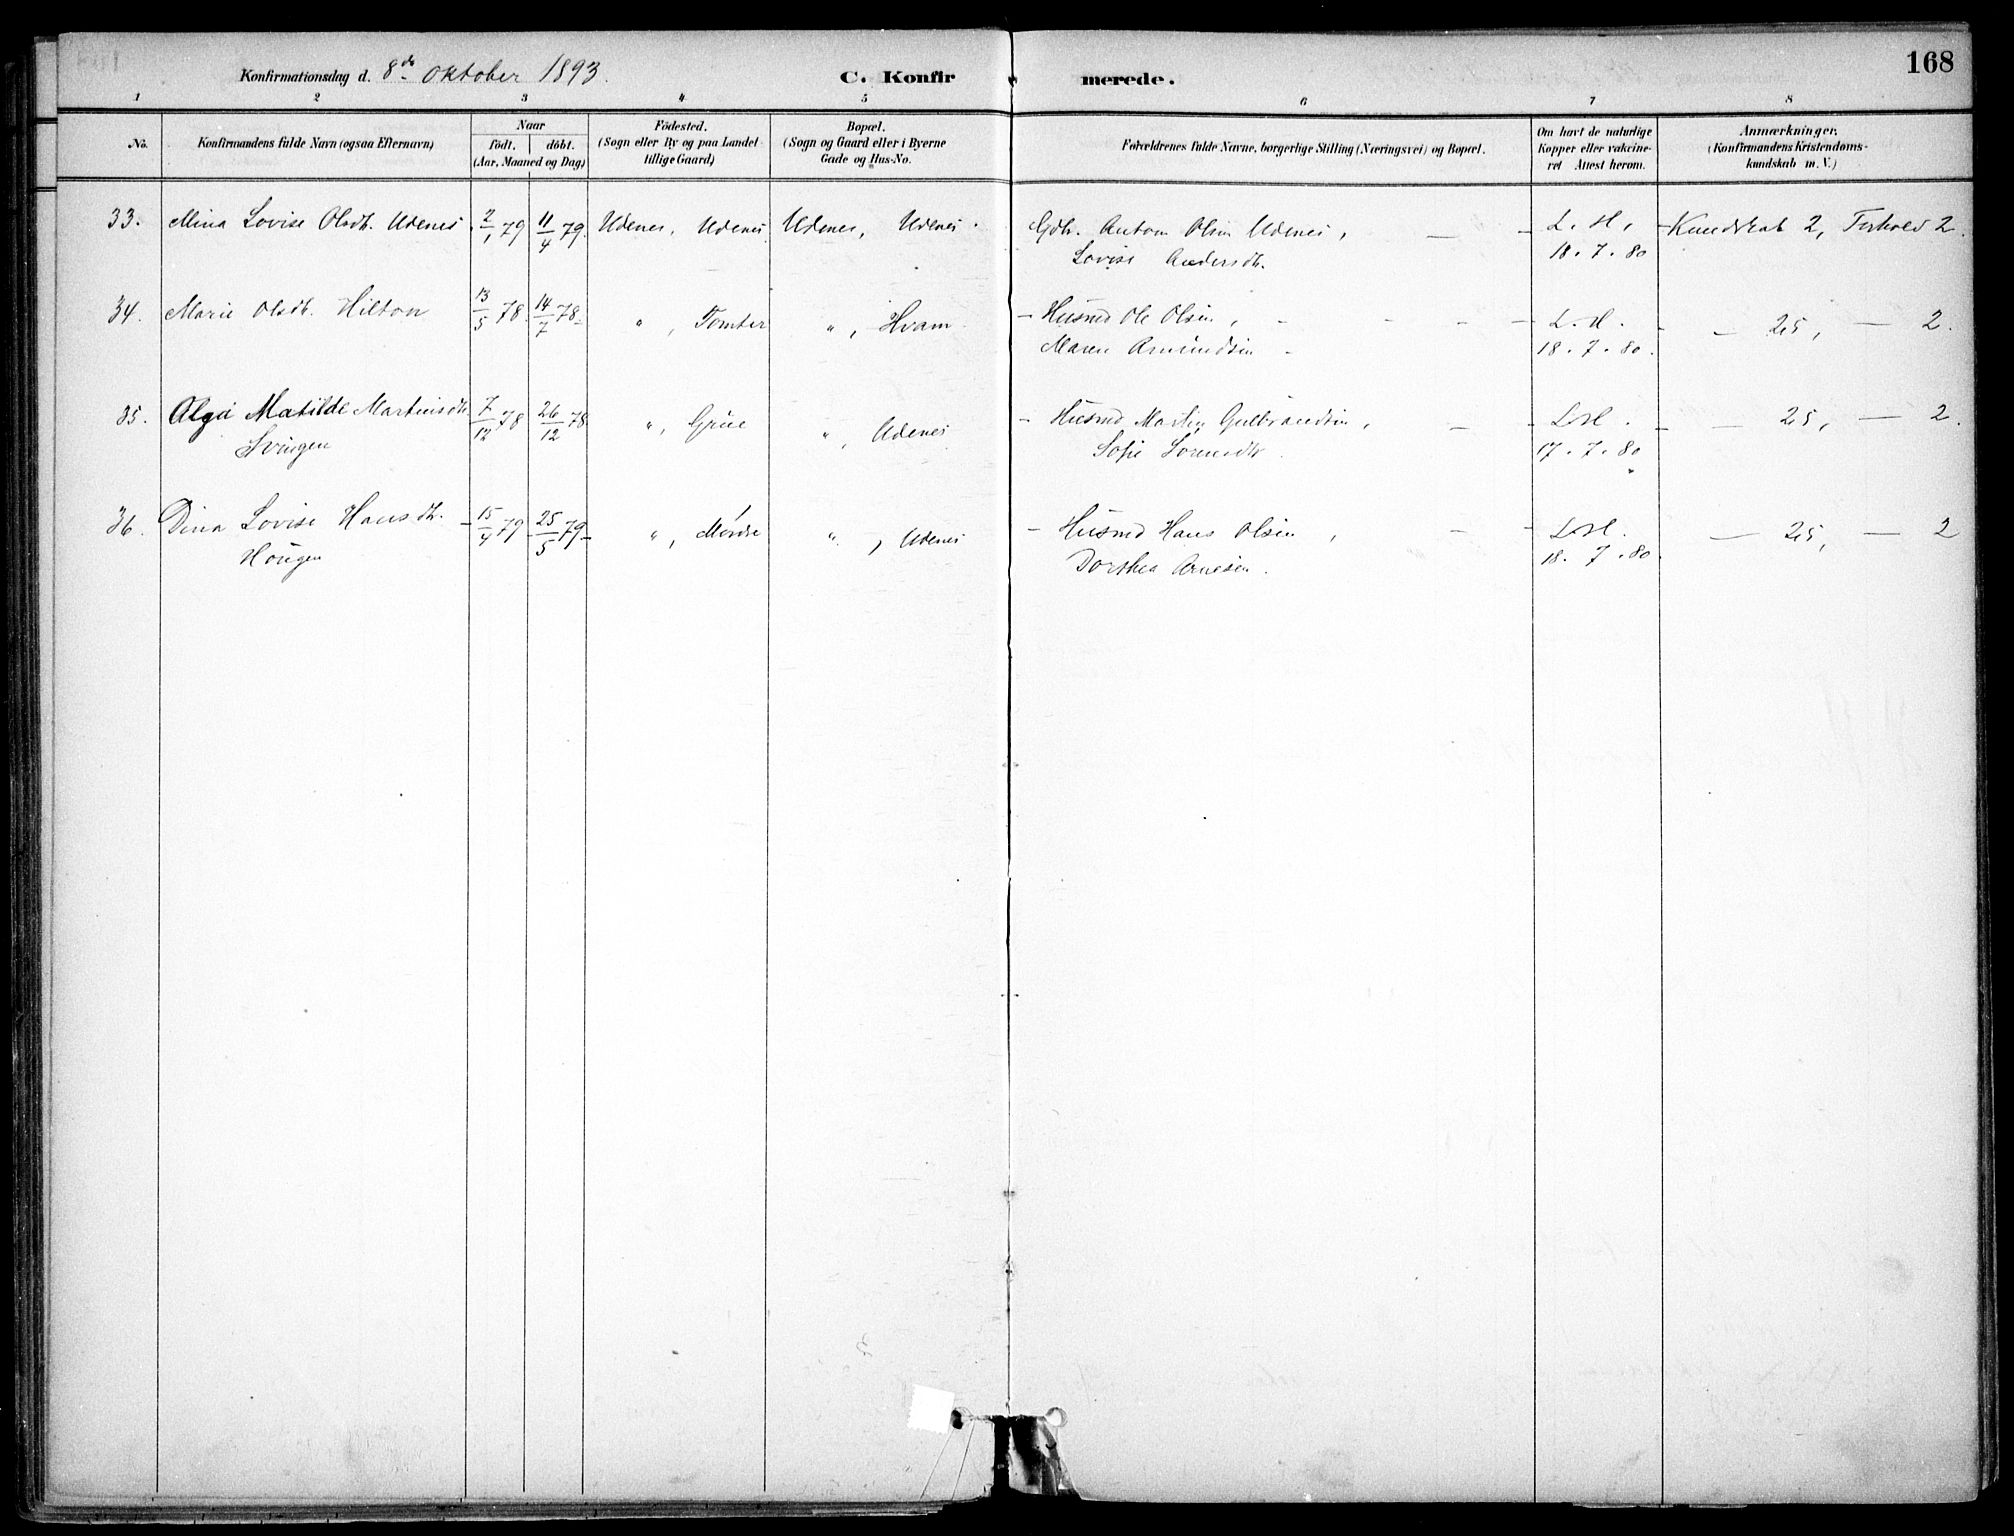 168
Konfirmationsdag d. 8de Oktober 1893. C. Konfirmerede.
1 2 3 4 5 6 7 8
No. Konfirmandens fulde Navn (ogsaa Efternavn) Naar født. døbt. (Aar, Maaned og Dag) Fødested. (Sogn eller By og paa Landet tillige Gaard) Bopæl. (Sogn og Gaard eller i Byerne Gade og Hus-No. Forældrenes fulde Navne, borgerlige Stilling (Næringsvei) og Bopæl. Om havt de naturlige Kopper eller vakcineret Attest herom. Anmærkninger. (Konfirmandens Kristendomskundskab m. V.)
33. Mina Lovise Olsdtr. Udenes 2/1 79 11/4 79. Udenes, Udenes Udenes, Udenes. Gdbr. Anton Olsen Udenes, — L. H. — Kundskab 2, Forhold 2.
Lovise Andersdtr. 18. 7. 80
34. Marie Olsdtr. Hilton 13/5 78. 14/7 78. „ , Tomter „ , Hvam — Husmd Ole Olsen, — L. H. — 2.5, — 2.
Maren Amundsen 18. 7. 80.
35. Alga Matilde Martinsdtr 7/12 78 26/12 78 „ , Grue „ , Udenes — Husmd Martin Gulbrandsen, — L. H. — 2.5, — 2.
Svingen Sofie Sørensdtr. 17. 7. 80
36. Dina Lovise Hansdtr. 15/4 79 25/5 79 „ , Mørdre „ , Udenes — Husmd Hans Olsen, — L. H. — 2.5, — 2
Haugen Dorthea Arnesen. 18. 7. 80.